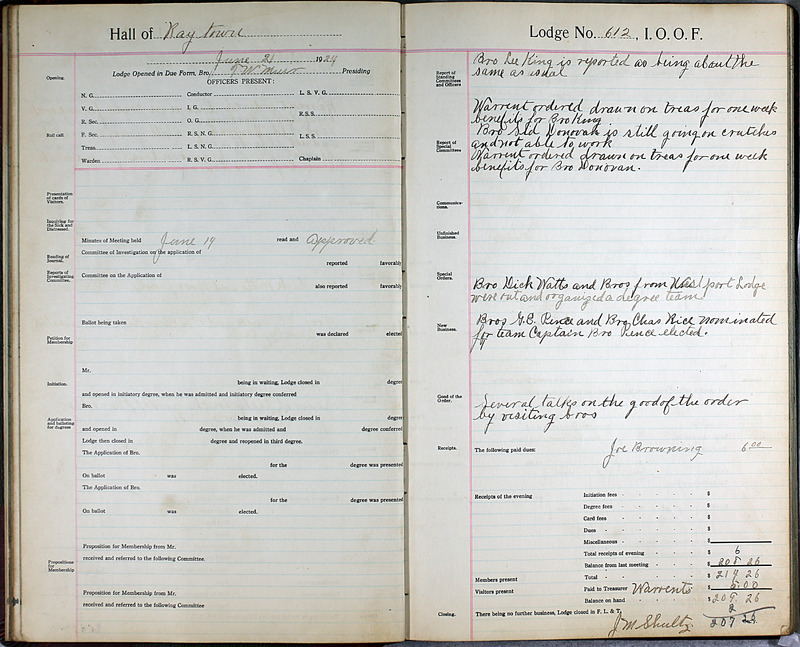 Hall of Ray town
June 21 1924
Lodge Opened in Due Form, Bro. Presiding
Opening.
OFFICERS PRESENT:
N. G. Conductor L. S. V. G.
V. G. I. G.
R. S. S.
R. Sec. O. G.
Roll call.
F. Sec. R. S. N. G.
L. S. S.
Treas. L. S. N. G.
Warden R. S. V. G. Chaplain
Presentation of cards of Visitors.
Inquiring for the Sick and Distressed.
Minutes of Meeting held June 14 read and approved
Reading of Journal.
Committee of Investigation on the application of
reported favorably
Reports of Investigating Committee.
Committee on the Application of
also reported favorably
Ballot being taken
was declared elected
Petition for Membership
Mr.
Initiation.
being in waiting, Lodge closed in degree
and opened in initiatory degree, when he was admitted and initiatory degree conferred
Bro.
Application and balloting for degrees
being in waiting, Lodge closed in degree
and opened in degree, when he was admitted and degree conferred
Lodge then closed in degree and reopened in third degree.
The Application of Bro.
for the degree was presented
On ballot was elected.
The Application of Bro.
for the degree was presented
On ballot was elected.
Proposition for Membership from Mr.
received and referred to the following Committee.
Propositions for Membership
Proposition for Membership from Mr.
received and referred to the following Committee
Lodge No. 612, I. O. O. F.
Report of Standing Committees and Officers
Bro Lee King is reported as being about the
same as usual
Warrent ordered drawn on treas for one week
benefits for Bro King
Bro Sid Donovan is still going on crutches
and not able to work
Report of Special Committees
Warrent ordered drawn on treas for one week
benefits for Bro Donovan.
Communications.
Unfinished Business.
Special Orders.
Bro Dick Watts and Bros from West port Lodge
were out and organized a degree team
New Business.
Bros G.E. Pence and Bro Chas Rice nominated
for team Captain Bro Pence elected.
Good of the Order.
Several talks on the good of the order
by visiting bros
Receipts.
The following paid dues: Joe Browning 6.00
Receipts of the evening Initiation fees $
Degree fees $
Card fees $
Dues $
Miscellaneous $
Total receipts of evening $ 6
Balance from last meeting $ 208 26
Members present Total $ 214 26
Visitors present Paid to Treasurer Warrents $ 5.00
Balance on hand $ 209.26
2
Closing. There being no further business, Lodge closed in F. L. & T.
J M Shultz. 207 26